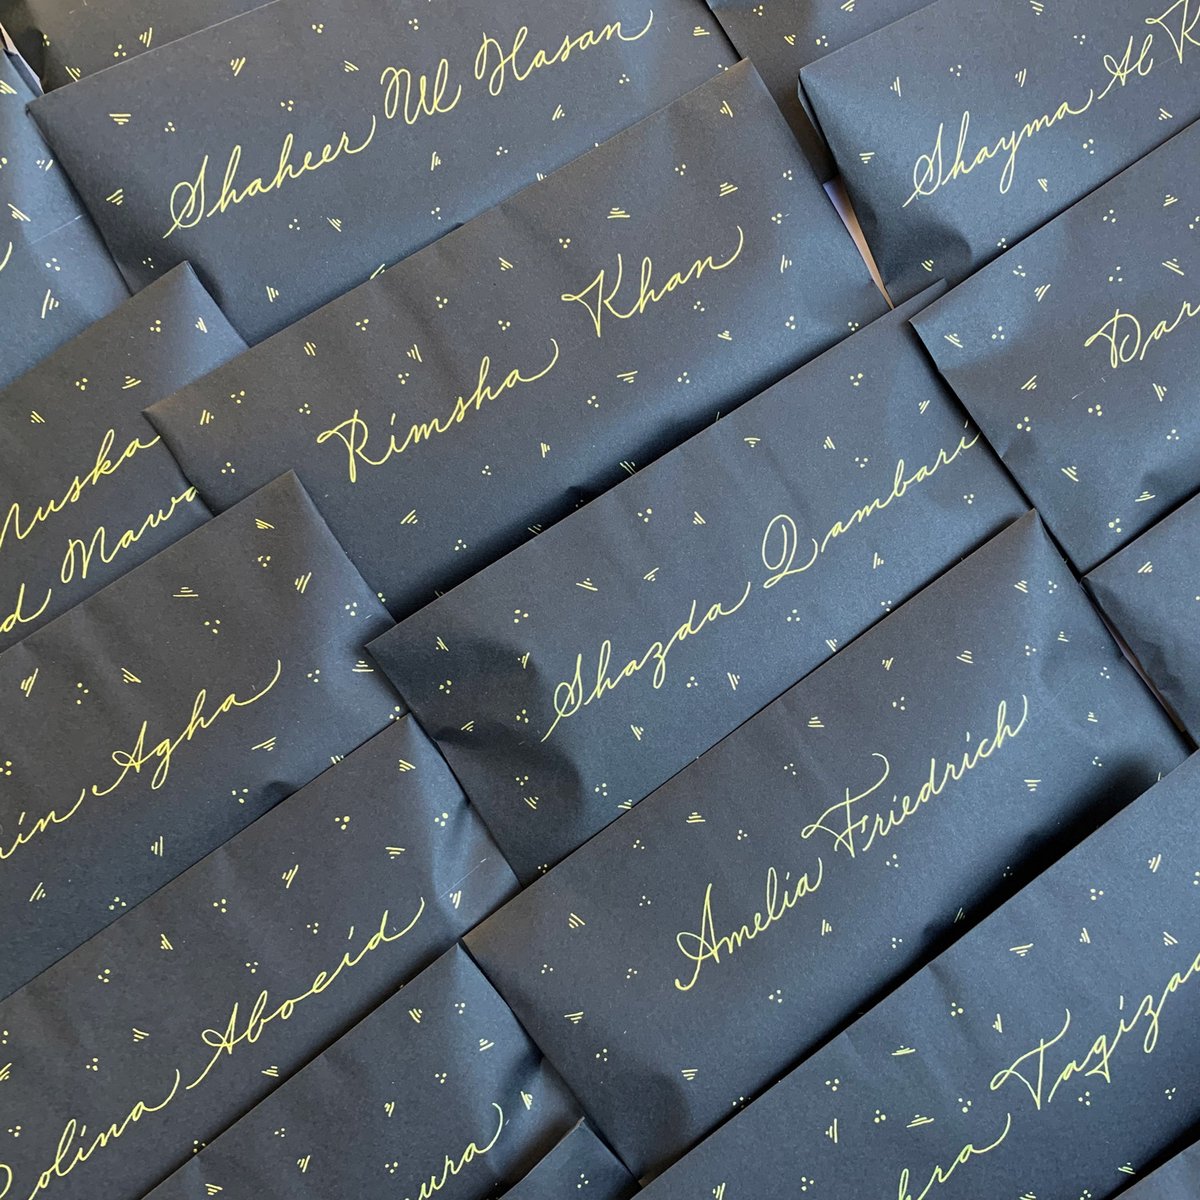 Shaheer Ul Hasan
Shayma Al K
Rimsha Khan
Dar
Muska
d Mawa
Shazda Qambari
rin Agha
Amelia Friedrich
olina Aboeid
Tagizad
ura
hra